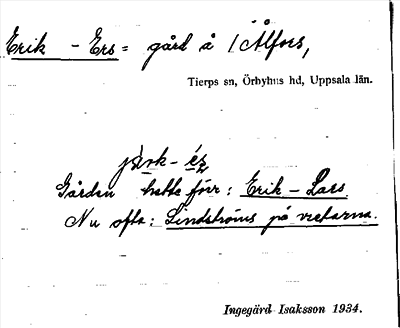 Erik - Ers = gård å / Ålfors,
Tierps sn, Örbyhus hd, Uppsala län.
Gården hette förr: Erik - Lars
Nu ofta: Lindströms på vretarna.
Ingegärd Isaksson 1934.